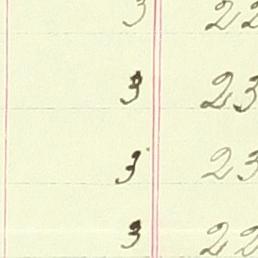 3 22
3 23
3 23
3 22